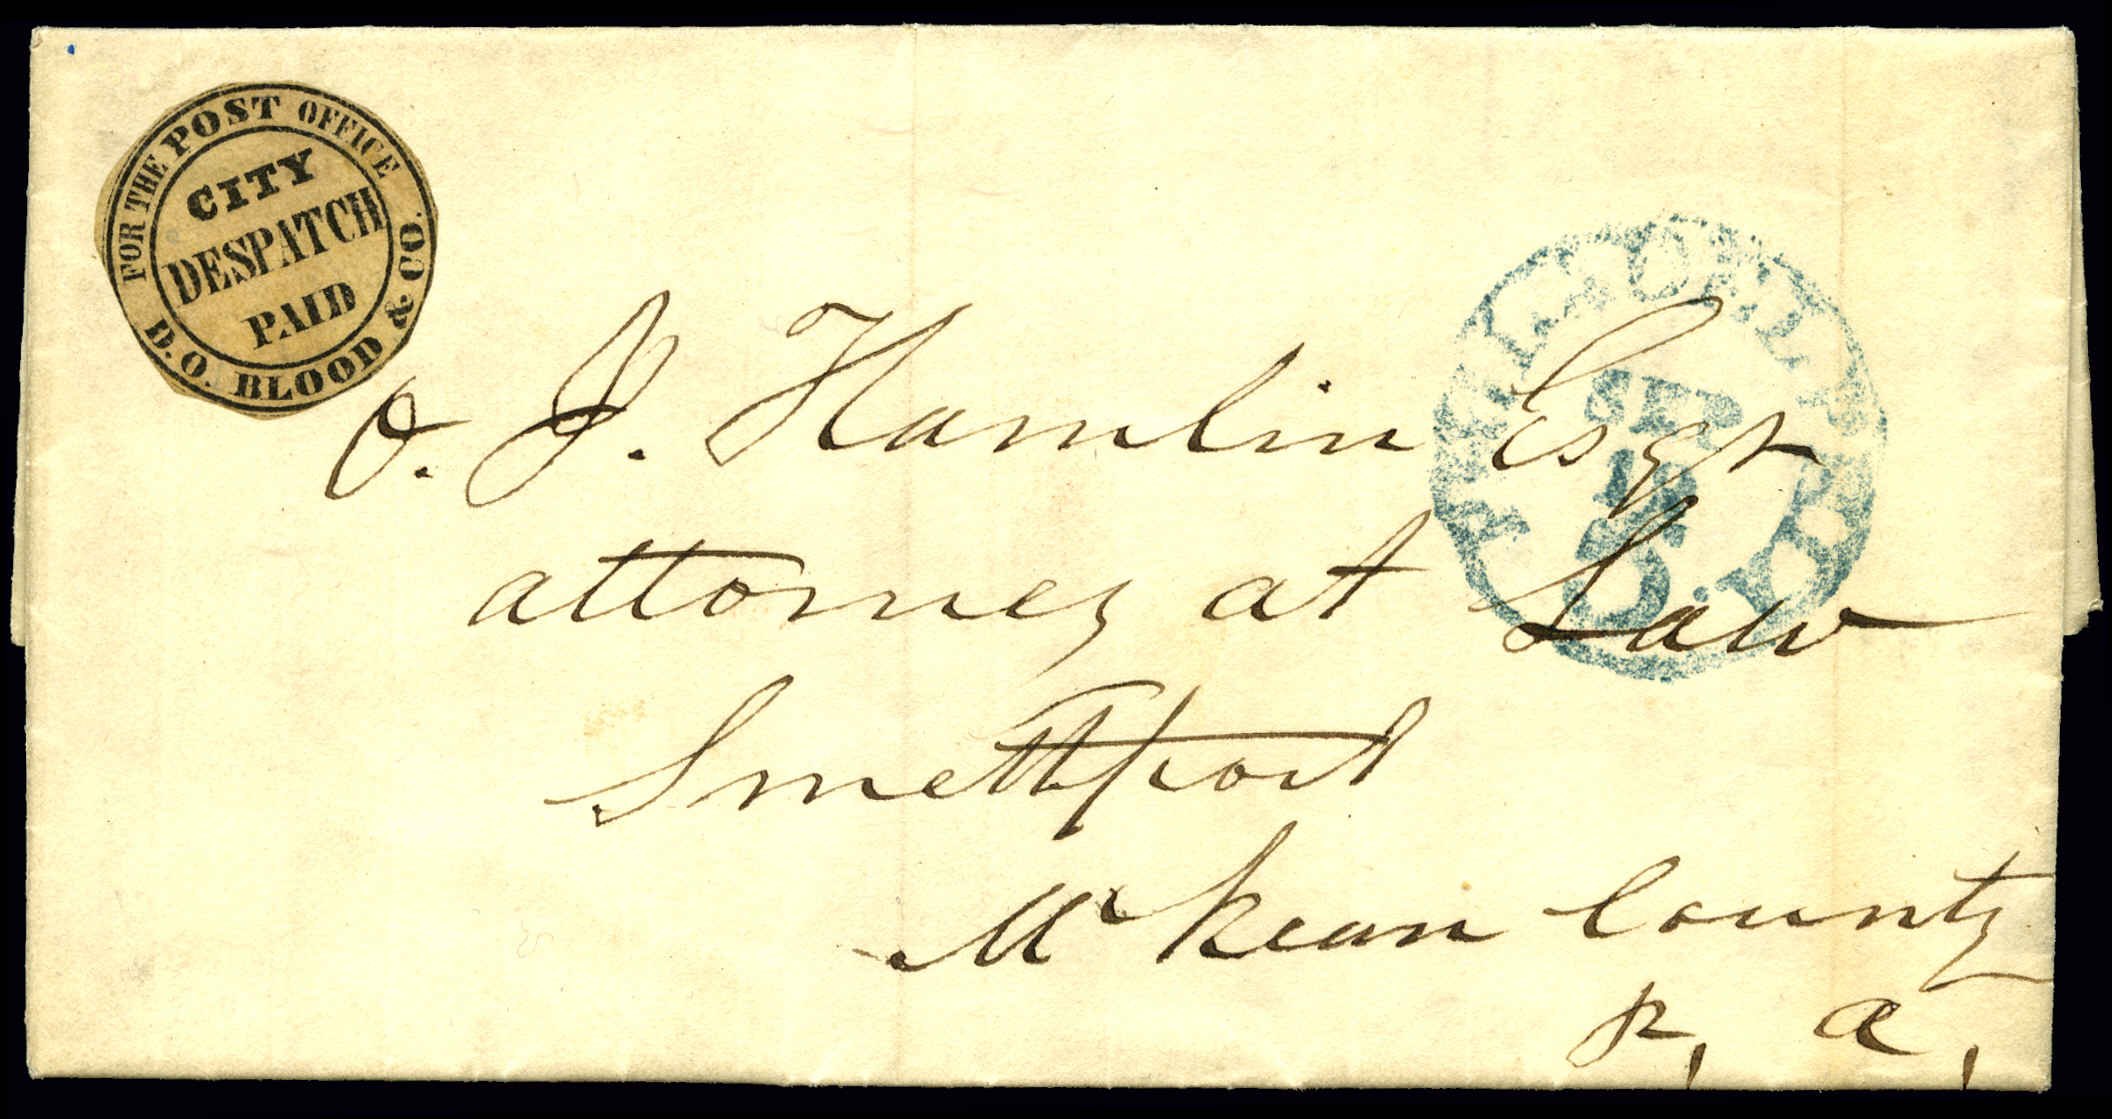 FOR THE POST OFFICE
CITY
DESPATCH
PAID
D.O. BLOOD & CO.
SEP
5
O. J. Hamlin Esqr
attorney at Law
Smethport
Mc Kean County
P. a,